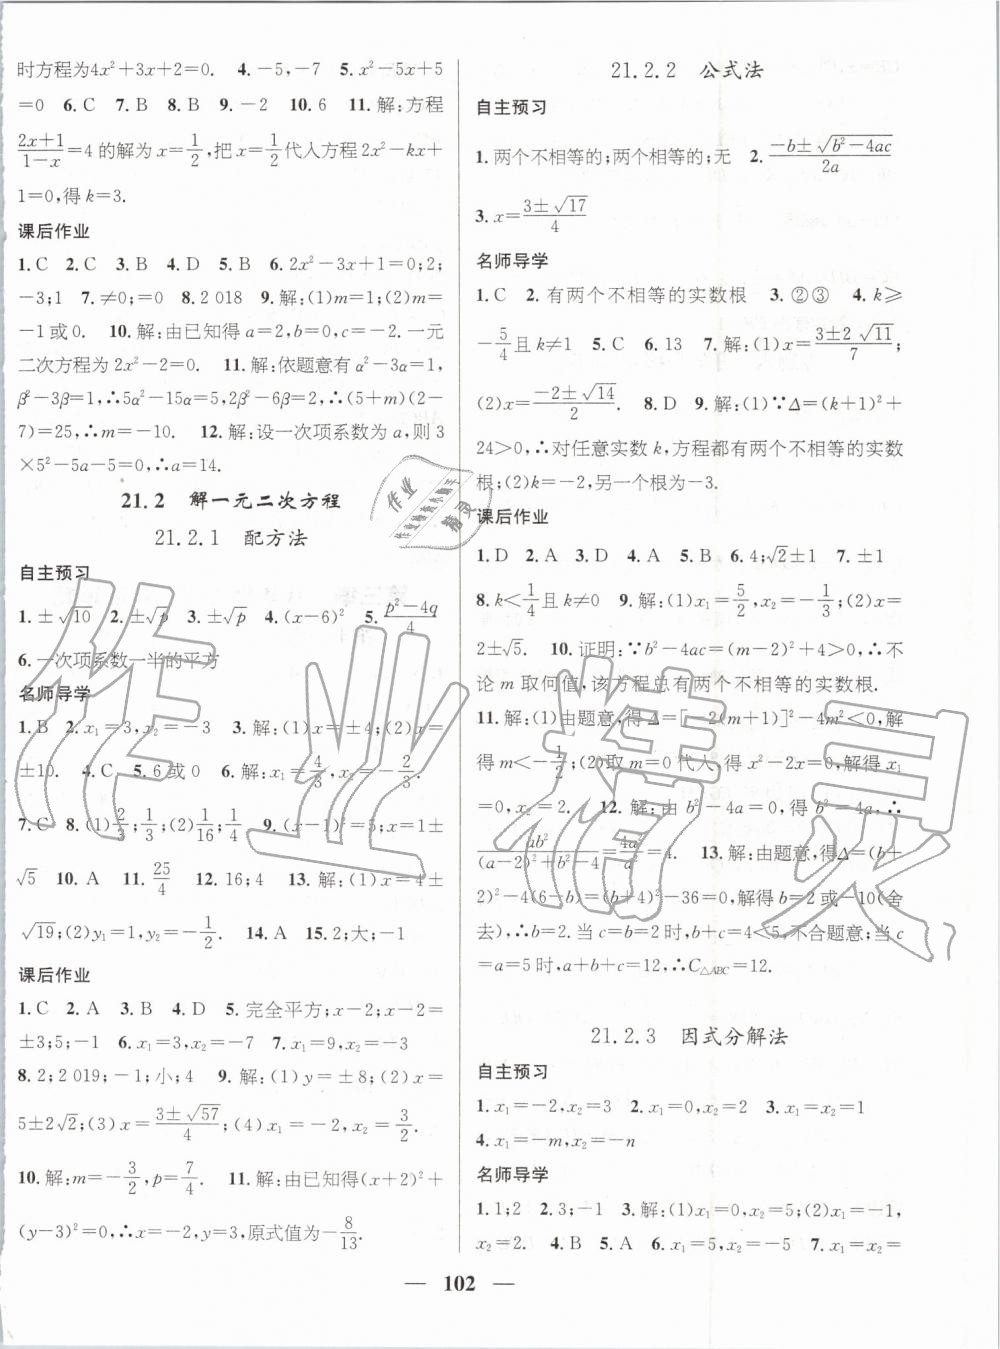 时方程为4x²+3x+2=0.　4.-5,-7　5.x²-5x+5
=0　6.C　7.B　8.B　9.-2　10.6　11.解:方程
(2x+1)/(1-x)=4的解为x=1/2,把x=1/2代入方程2x²-kx+
1=0,得k=3.
课后作业
1.C　2.C　3.B　4.D　5.B　6.2x²-3x+1=0;2;
-3;1　7.≠0;=0　8.2 018　9.解:(1)m=1;(2)m=
-1或0.　10.解:由已知得a=2,b=0,c=-2.一元
二次方程为2x²-2=0.　11.解:依题意有α²-3α=1,
β²-3β=1,∴5α²-15α=5,2β²-6β=2,∴(5+m)(2-
7)=25,∴m=-10.　12.解:设一次项系数为a,则3
×5²-5a-5=0,∴a=14.
21.2　解一元二次方程
21.2.1　配方法
自主预习
1.±√10　2.±√p　3.±√p　4.(x-6)²　5.(p²-4q)/4
6.一次项系数一半的平方
名师导学
1.B　2.x₁=3,x₂=-3　3.解:(1)x=±4;(2)x=
±10.　4.C　5.6或0　6.解:x₁=4/3,x₂=-2/3.
7.C　8.(1)2/3;1/3;(2)1/16;1/4　9.(x-1)²=5;x=1±
√5　10.A　11.25/4　12.16;4　13.解:(1)x=4±
√19;(2)y₁=1,y₂=-1/2.　14.A　15.2;大;-1
课后作业
1.C　2.A　3.B　4.D　5.完全平方;x-2;x-2=
±3;5;-1　6.x₁=3,x₂=-7　7.x₁=9,x₂=-3
8.2;2 019;-1;小;4　9.解:(1)y=±8;(2)x=
5±2√2;(3)x=(3±√57)/4;(4)x₁=-2,x₂=3/2.
10.解:m=-3/2,p=7/4.　11.解:由已知得(x+2)²+
(y-3)²=0,∴x=-2,y=3,原式值为-8/13.
21.2.2　公式法
自主预习
1.两个不相等的;两个相等的;无　2.(-b±√(b²-4ac))/2a
3.x=(3±√17)/4
名师导学
1.C　2.有两个不相等的实数根　3.②③　4.k≥
-5/4且k≠1　5.C　6.13　7.解:(1)x=(3±2√11)/7;
(2)x=(-2±√14)/2.　8.D　9.解:(1)∵Δ=(k+1)²+
24>0,∴对任意实数k,方程都有两个不相等的实数
根;(2)k=-2,另一个根为-3.
课后作业
1.D　2.A　3.D　4.A　5.B　6.4;√2±1　7.±1
8.k<1/4且k≠0　9.解:(1)x₁=5/2,x₂=-1/3;(2)x=
2±√5.　10.证明:∵b²-4ac=(m-2)²+4>0,∴不
论m取何值,该方程总有两个不相等的实数根.
11.解:(1)由题意,得Δ=[-2(m+1)]²-4m²<0,解
得m<-1/2;(2)取m=0代入,得x²-2x=0,解得x₁
=0,x₂=2.　12.解:由b²-4a=0,得b²=4a,∴
ab²/((a-2)²+b²-4)=4a²/a²=4.　13.解:由题意,得Δ=(b+
2)²-4(6-b)=(b+4)²-36=0,解得b=2或-10(舍
去),∴b=2.当c=b=2时,b+c=4<5,不合题意;当c
=a=5时,a+b+c=12,∴C△ABC=12.
21.2.3　因式分解法
自主预习
1.x₁=-2,x₂=3　2.x₁=0,x₂=2　3.x₁=x₂=1
4.x₁=-m,x₂=-n
名师导学
1.1;2　2.3;-1　3.解:(1)x₁=0,x₂=5;(2)x₁=-1,
x₂=2.　4.B　5.A　6.x₁=5,x₂=-5　7.x₁=x₂=
— 102 —
作业精灵
作业
精灵